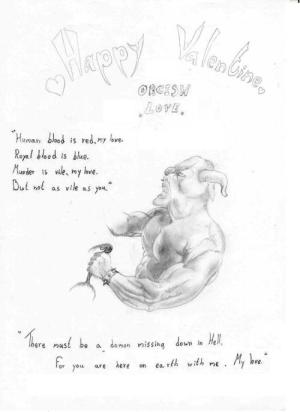 Happy Valentine
ORCISH
LOVE.
"Human blood is red, my love.
Royal blood is blue.
Murder is vile, my love.
But not as vile as you."
"There must be a demon missing down in Hell.
For you are here on earth with me. My love."